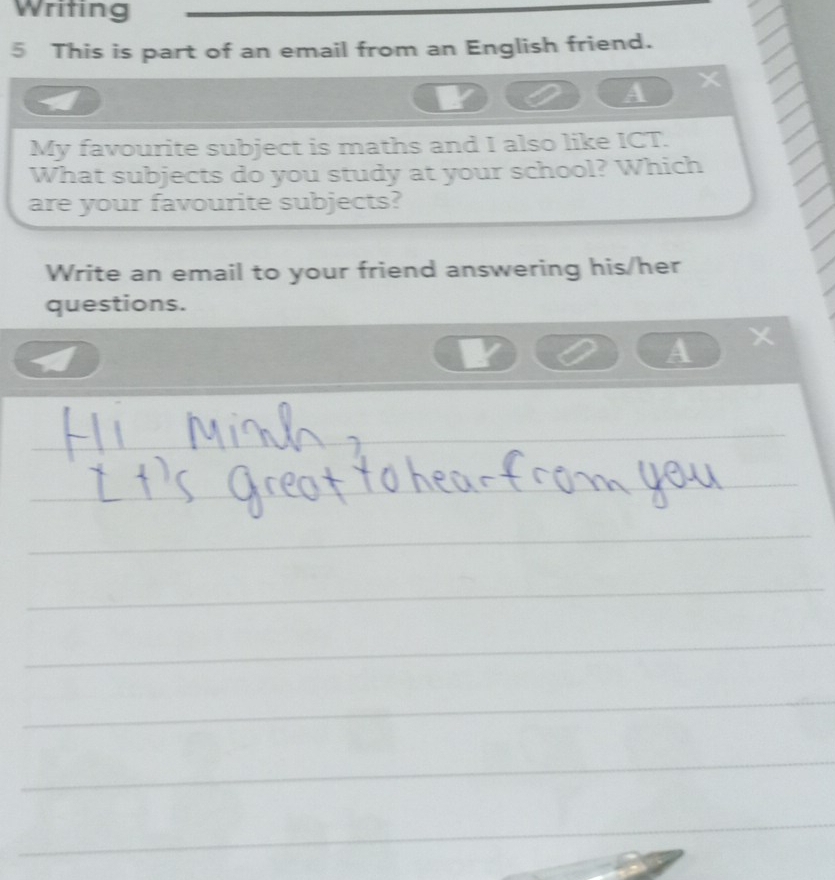 Writing
5 This is part of an email from an English friend.
A ×
My favourite subject is maths and I also like ICT.
What subjects do you study at your school? Which
are your favourite subjects?
Write an email to your friend answering his/her
questions.
A ×
Hi Minh,
It's great to hear from you